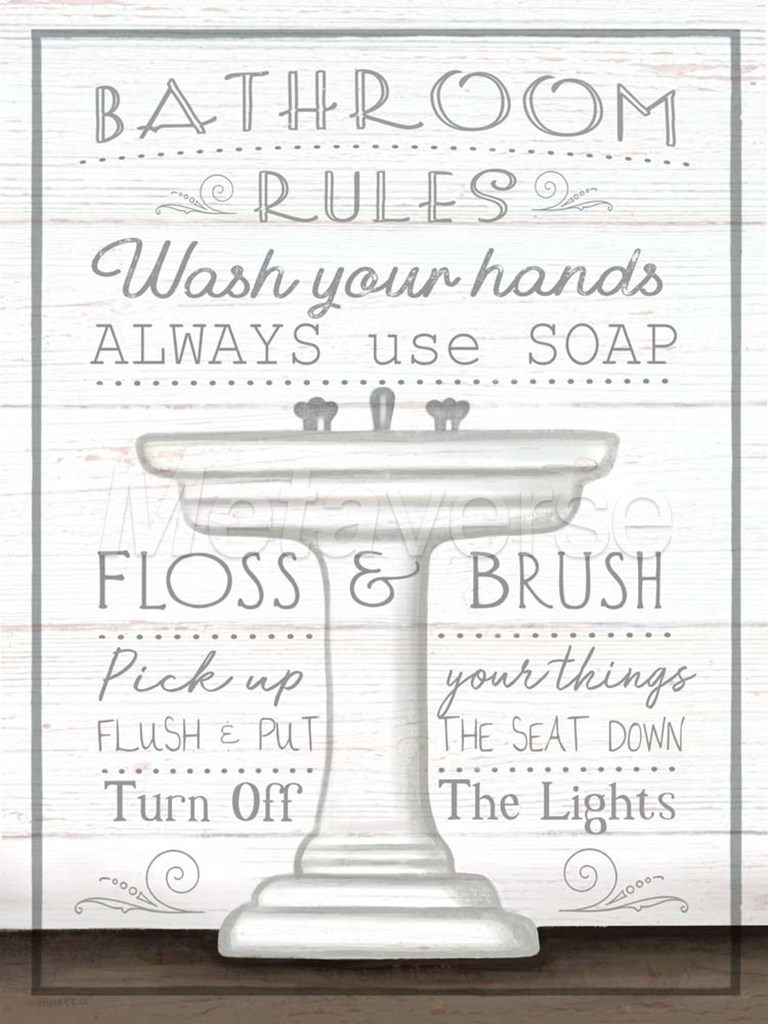 BATHROOM
RULES
Wash your hands
ALWAYS use SOAP
Metaverse
FLOSS & BRUSH
Pick up your things
FLUSH & PUT THE SEAT DOWN
Turn Off The Lights